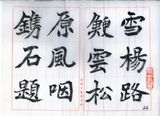 雪楊路
鯁雲松
原風咽
鐫石題